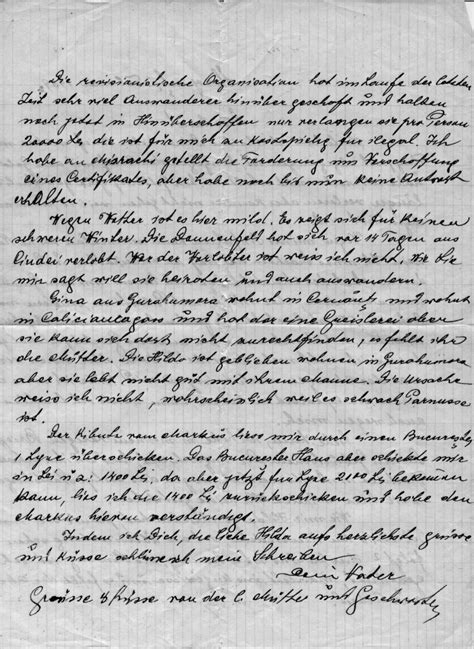 Die revisionistische Organisation hat im Laufe der letzten
Zeit sehr viel Auswanderer hinüber geschafft und halten
noch jetzt in Hinüberschaffen nur verlangen sie pro Person
20000 Lei das ist für mich zu kostspielig für ilegal. Ich
habe an Misrachi gestellt die Forderung um Verschaffung
eines Certifikates, aber habe noch bis nun keine Antwort
erhalten.
Wegen Wetter ist es hier mild. Es zeigt sich für keinen
schweren Winter. Die Dannenfeld hat sich vor 14 Tagen aus
verlobt. Wer der Verlobter ist weiss ich nicht. Wie sie
mir sagt will sie heiraten und auch auswandern.
Gina aus Gurahumora wohnt in Cernăuți und wohnt
in und hat der eine Greislerei aber
sie kann sich dort nicht zurechtfinden, es fehlt ihr
die Mutter. Die Hilda ist geblieben wohnen in Gurahumora
aber sie lebt nicht gut mit ihrem Manne. Die Ursache
weiss ich nicht, wahrscheinlich weil es schwach Parnusse
ist.
Der vom Markus liess mir durch einen Bucurester
1 Lyre überschicken. Das Bucurester Haus aber schickte mir
in Lei 1400 Lei, da aber jetzt für Lyre 2100 Lei bekommen
kann, lies ich die 1400 Lei zurückschicken und habe den
Markus hievon verständigt.
Indem ich Dich, die liebe Hilda aufs herzlichste grüsse
und küsse schliesse ich mein Schreiben
Dein Vater
Grüsse & Küsse von der l. Mutter und Geschwister